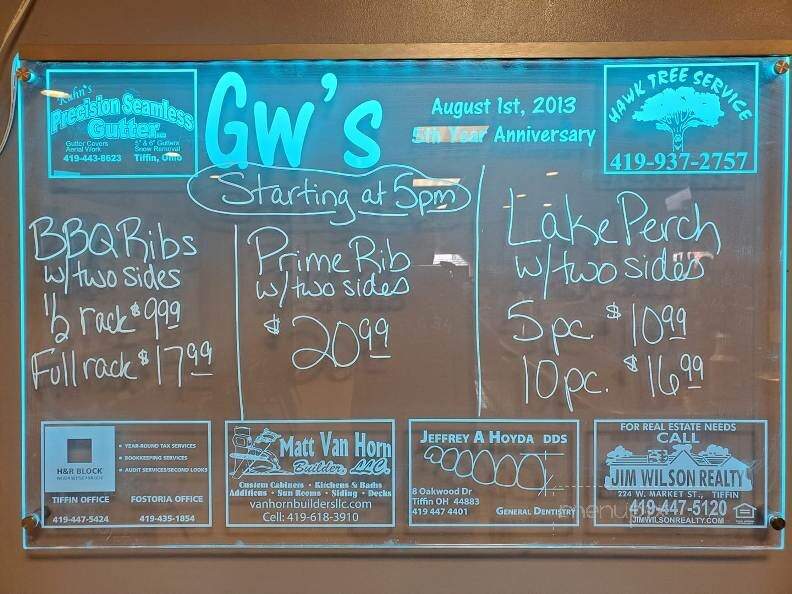 Kuhn's
Precision Seamless
Gutter LLC
Gutter Covers
Aerial Work
5" & 6" Gutters
Snow Removal
419-443-8623 Tiffin, Ohio
GW's
August 1st, 2013
5th Year Anniversary
HAWK TREE SERVICE
419-937-2757
Starting at 5pm
BBQ Ribs
w/two sides
1/2 rack $9.99
Full rack $17.99
Prime Rib
w/two sides
$20.99
Lake Perch
w/two sides
5 pc. $10.99
10 pc. $16.99
H&R BLOCK
• YEAR-ROUND TAX SERVICES
• BOOKKEEPING SERVICES
• AUDIT SERVICES/SECOND LOOKS
TIFFIN OFFICE
419-447-5424
FOSTORIA OFFICE
419-435-1854
Matt Van Horn
Builder, LLC.
Custom Cabinets • Kitchens & Baths
Additions • Sun Rooms • Siding • Decks
vanhornbuildersllc.com
Cell: 419-618-3910
JEFFREY A HOYDA DDS
8 Oakwood Dr
Tiffin OH 44883
419 447 4401
GENERAL DENTISTRY
FOR REAL ESTATE NEEDS
CALL
JIM WILSON REALTY
224 W. MARKET ST., TIFFIN
419-447-5120
JIMWILSONREALTY.COM